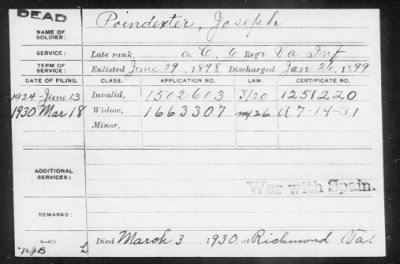 DEAD
NAME OF SOLDIER: Poindexter, Joseph
SERVICE: Late rank, Co. C, 6 Reg't Va Inf
TERM OF SERVICE: Enlisted June 29, 1898 Discharged Jan 26, 1899
DATE OF FILING. CLASS. APPLICATION NO. CERTIFICATE NO.
1924-June 13 Invalid, 1502-603 1251220
1930 Mar 18 Widow, 1663307 A 7-14-31
Minor,
ADDITIONAL SERVICES:
War with Spain.
REMARKS:
Died March 3 1930, at Richmond Va.